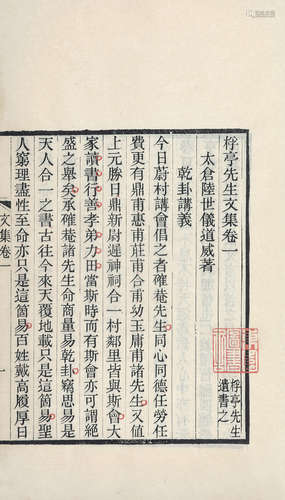 桴亭先生文集卷一
太倉陸世儀道威著
乾卦講義
今日蔚村講會倡之者確菴先生同心同德任勞任
費更有鼎甫惠甫莊甫合甫幼玉庸甫諸先生又值
上元勝日鼎新尉遲神祠合一村鄰里皆與斯會大
家讀書行善孝弟力田當斯時而有斯會亦可謂絕
盛之舉矣承確菴諸先生命商量易乾卦竊思易是
天人合一之書古往今來天覆地載只是這箇易聖
人窮理盡性至命亦只是這箇易百姓戴高履厚日
文集卷一
一
桴亭先生
遺書之